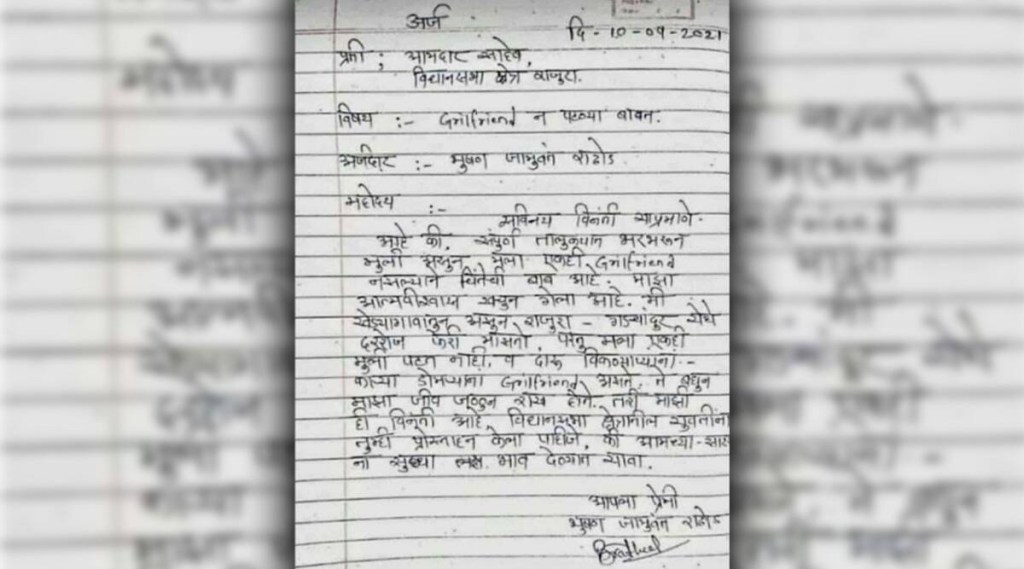 अर्ज
दि - 10-09-2021
प्रती ; आमदार साहेब,
विधानसभा क्षेत्र राजुरा.
विषय :- Grilfriend न पटण्या बाबत.
अर्जदार :- भुषण जामुवंत राठोड
महोदय :-
सविनय विनंती याप्रमाणे
आहे की. संपुर्ण तालुक्यात भरभरून
मुली असुन, मला एकही Grilfriend
नसल्याने चिंतेची बाब आहे. माझा
आत्मवीश्वास खचुन गेला आहे. मी
खेड्यागावातुन असुन राजुरा - गडचांदुर येथे
दररोज फेरी मारतो. परंतु मला एकही
मुली पटत नाही. व दारू विकणाऱ्याना -
काऱ्या डोमऱ्याना Grilfriend असते. ते बघुन
माझा जीव जळुन राख होतो. तरी माझी
ही विनंती आहे. विधानसभा क्षेत्रातील युवतींना
तुम्ही प्रोत्साहन केला पाहीजे. की आमच्या-सार
ना सुद्धा भाव देण्यात यावा.
आपला प्रेमी
भुषण जामुवंत राठोड